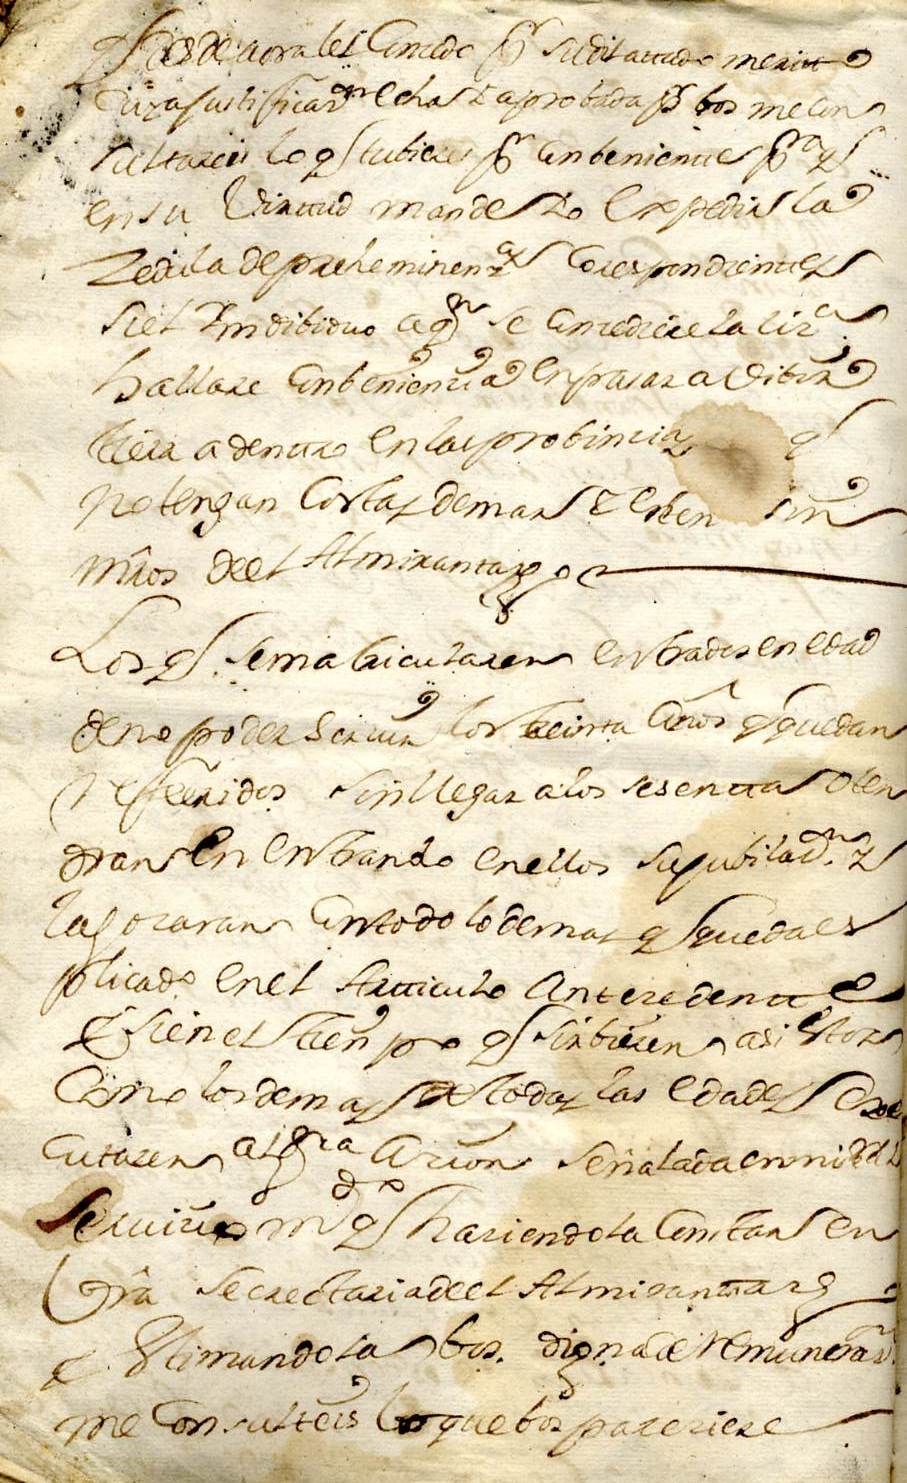 desde aora les Conzedo pr su dilattado meritto
cuya justificazon echa y aprobada pr bos me Con
sultareis lo q tubiereis pr Conbeniente pa q
en su Virttud mande Yo Expedir la
Zedula de preheminenzas Corespondientes
si el Yndibiduo a qn se Conzediere la liza
hallare Conbenienzia En pasar a Vibir
tiera adentro En las probinzias q
no tengan Costas de mar y esten sin
mros del Almirantazgo
Los q se matricularen Entrados en edad
de no poder Servir los treinta años q quedan
referidos sin llegar a los sesentta obten
dran En Entrando en ellos su jubilazon y
la gozaran Con todo lo demas q queda es
plicado En el Artticulo Antezedentte
Y si en el tienpo q sirbieren asi Estos
Como los demas de todas las Edades Exe
cutaren algna Azion señalada en mi Rl
servizio mdo q haziendola Constar en
Vra Secrettaria del Almirantazgo
y Estimandola bos digna de Remunerazn
me Consulteis lo que bos pareziere